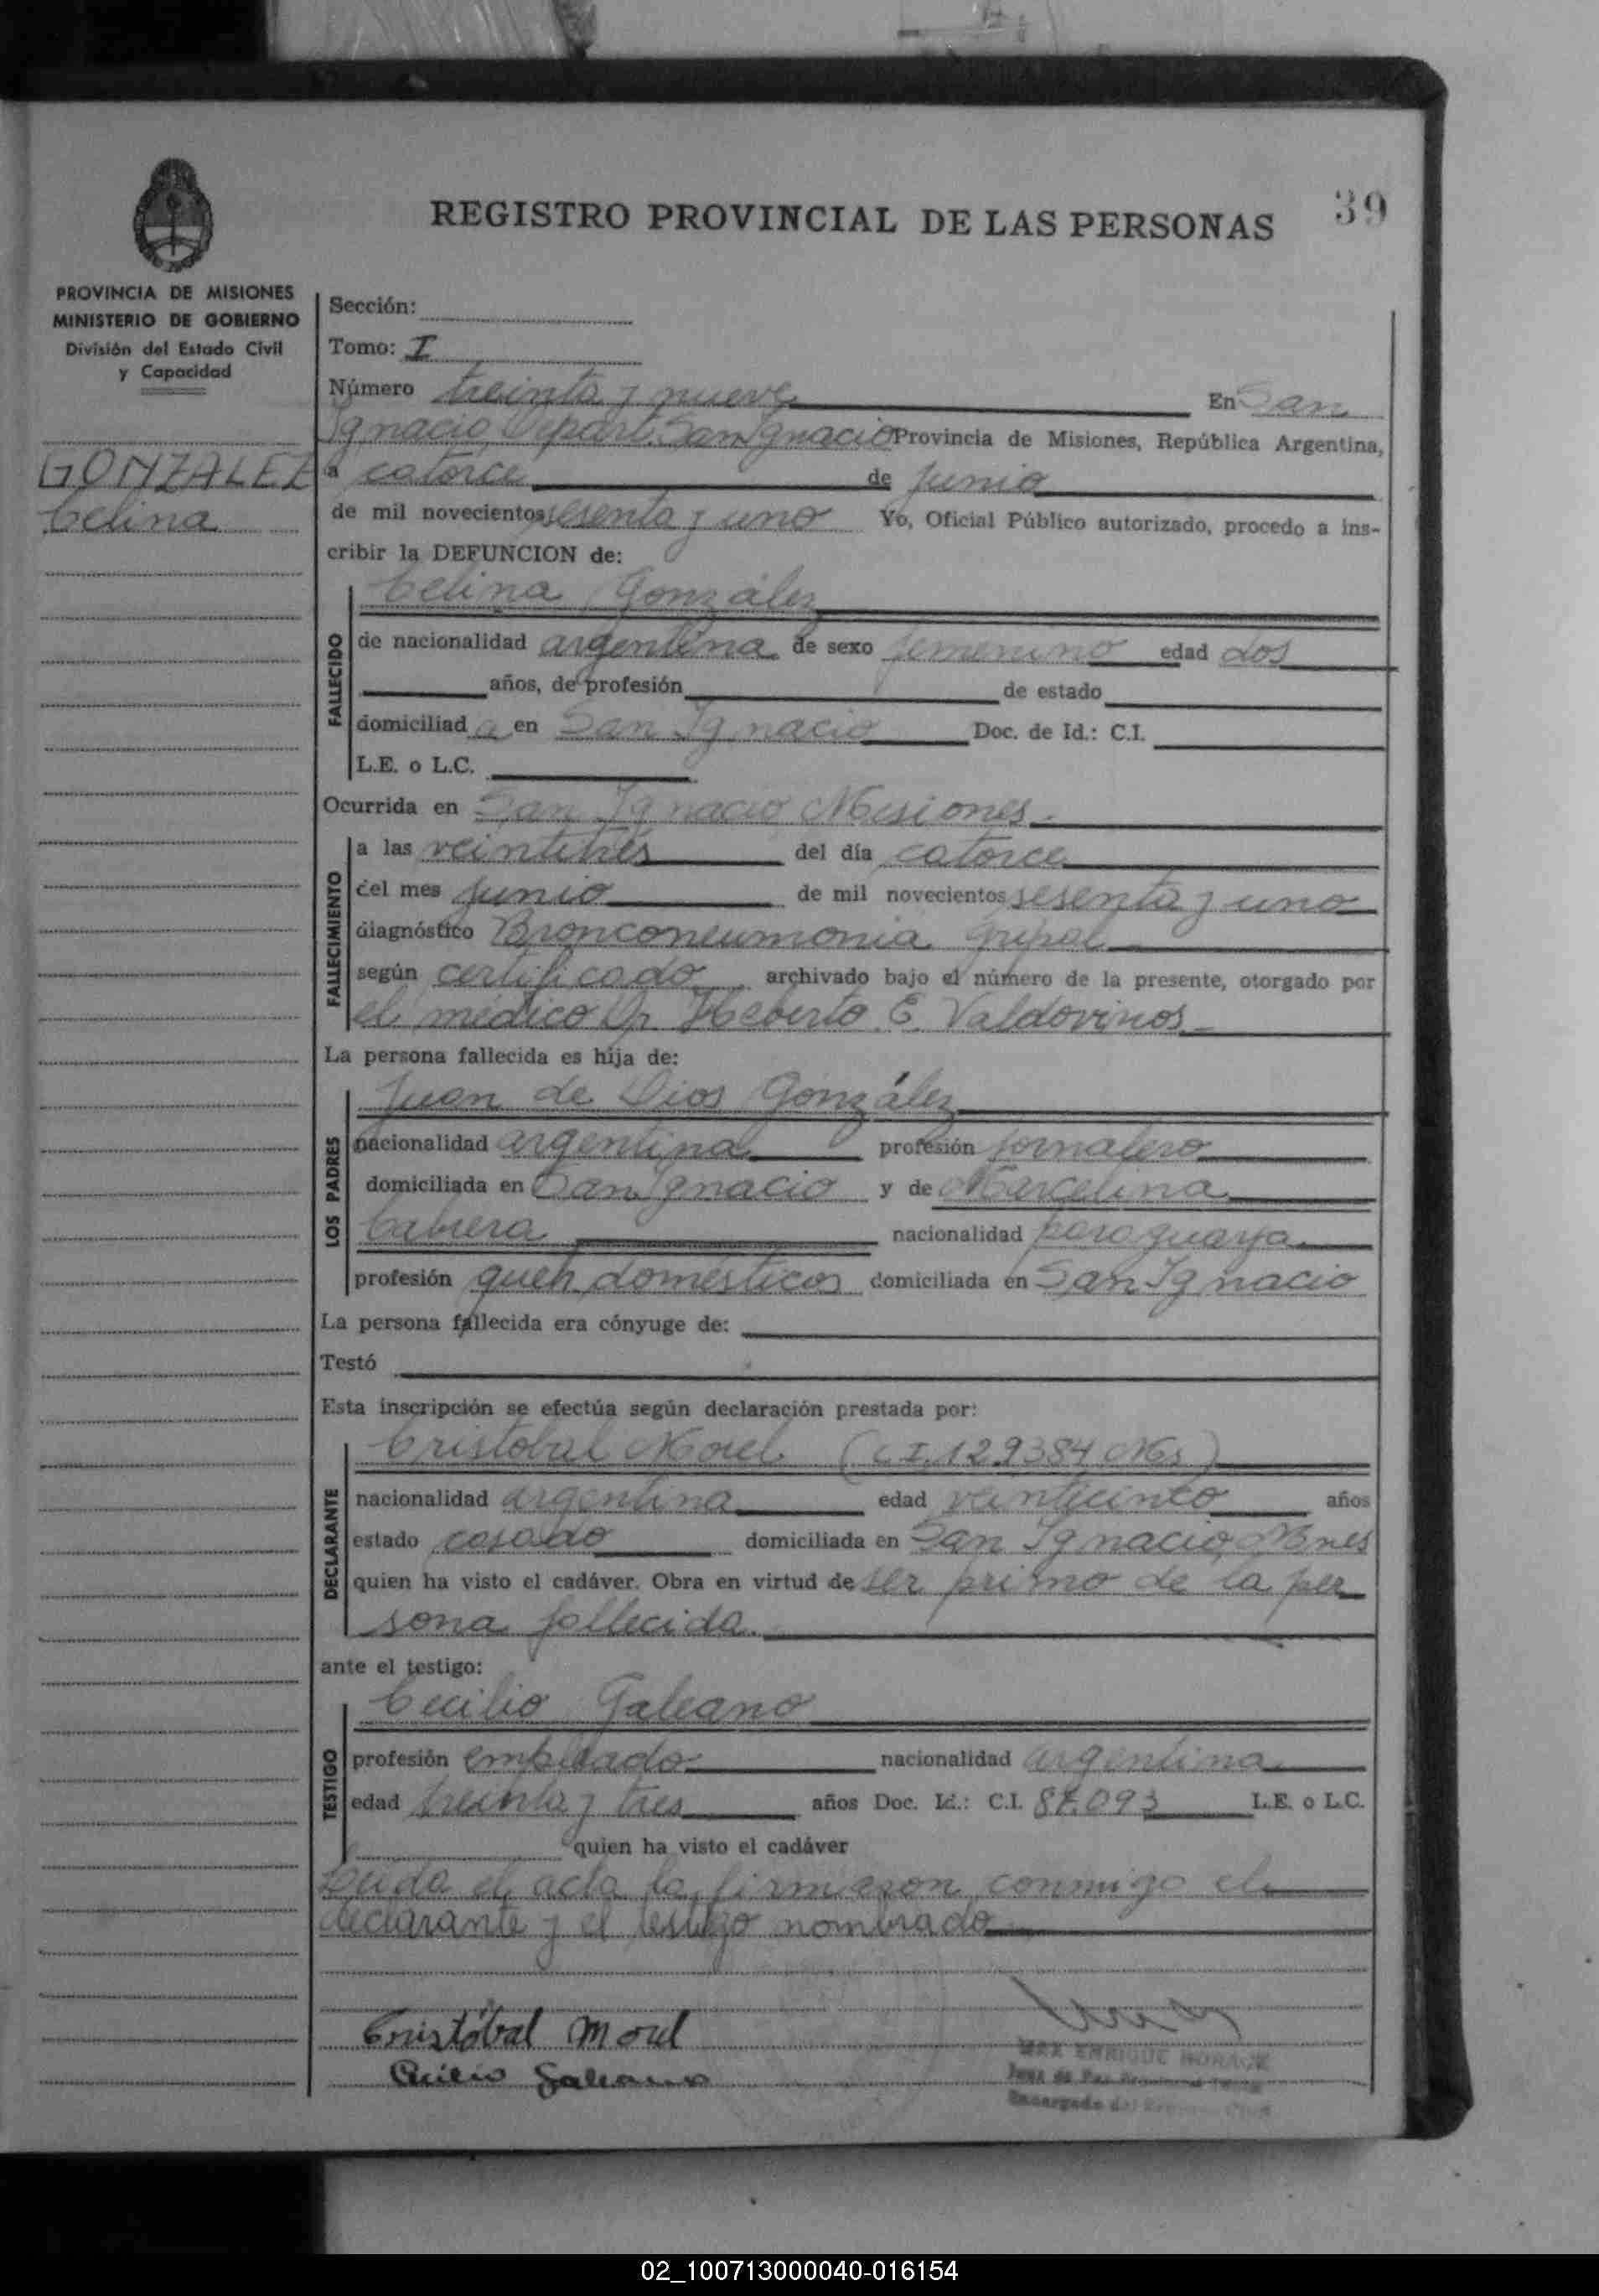 39
REGISTRO PROVINCIAL DE LAS PERSONAS
PROVINCIA DE MISIONES
MINISTERIO DE GOBIERNO
División del Estado Civil
y Capacidad
GONZALEZ
Celina
Sección:
Tomo: I
Número treinta y nueve En San
Ignacio, Depart. San Ignacio Provincia de Misiones, República Argentina,
a catorce de junio
de mil novecientos sesenta y uno Yo, Oficial Público autorizado, procedo a ins-
cribir la DEFUNCION de:
Celina González
FALLECIDO
de nacionalidad argentina de sexo femenino edad dos
años, de profesión de estado
domiciliad a en San Ignacio Doc. de Id.: C.I.
L.E. o L.C.
Ocurrida en San Ignacio Misiones.
FALLECIMIENTO
a las veintitrés del día catorce
del mes junio de mil novecientos sesenta y uno
diagnóstico Bronconeumonia gripal
según certificado archivado bajo el número de la presente, otorgado por
el médico Dr. Heberto E. Valdovinos
La persona fallecida es hija de:
Juan de Dios González
LOS PADRES
nacionalidad argentina profesión jornalero
domiciliada en San Ignacio y de Marcelina
Cabrera nacionalidad paraguaya
profesión queh. domésticos domiciliada en San Ignacio
La persona fallecida era cónyuge de:
Testó
Esta inscripción se efectúa según declaración prestada por:
Cristobal Morel (C.I. 129384 Ms)
DECLARANTE
nacionalidad argentina edad veinticinco años
estado casado domiciliada en San Ignacio, Mnes
quien ha visto el cadáver. Obra en virtud de ser primo de la per
sona fallecida.
ante el testigo:
Cecilio Galeano
TESTIGO
profesión empleado nacionalidad argentina
edad treinta y tres años Doc. Id.: C.I. 87.093 L.E. o L.C.
quien ha visto el cadáver
Leida el acta la firmaron conmigo el
declarante y el testigo nombrado
Cristóbal Morel
Cecilio Galeano
MAX ENRIQUE
Juez de Paz
Encargado del
02_100713000040-016154